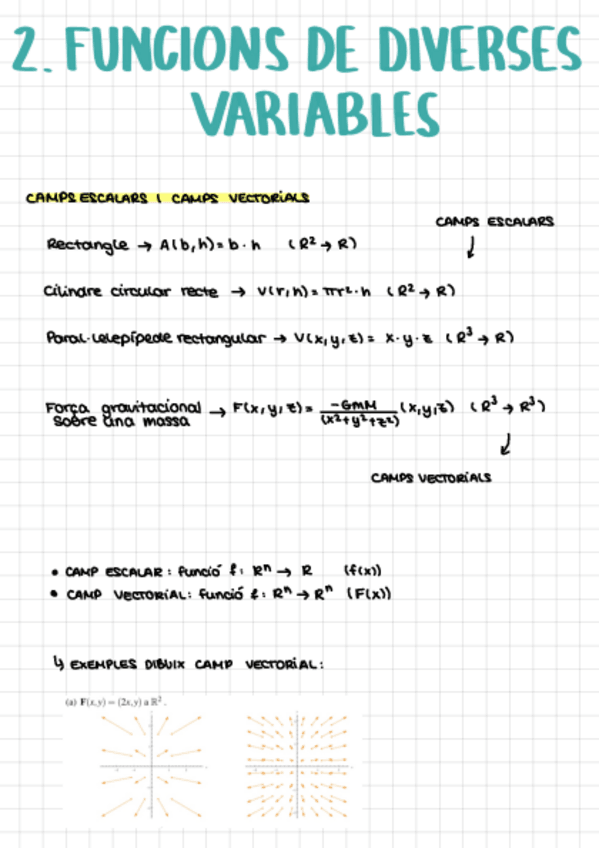 2. FUNCIONS DE DIVERSES
VARIABLES
CAMPS ESCALARS I CAMPS VECTORIALS
CAMPS ESCALARS
↓
Rectangle → A(b,h) = b · h (R² → R)
Cilindre circular recte → V(r,h) = πr² · h (R² → R)
Paral·lelepípede rectangular → V(x,y,z) = x · y · z (R³ → R)
Força gravitacional sobre una massa → F(x,y,z) = -GMM/(x²+y²+z²) (x,y,z) (R³ → R³)
↓
CAMPS VECTORIALS
• CAMP ESCALAR: funció f: Rⁿ → R (f(x))
• CAMP VECTORIAL: funció f: Rⁿ → Rⁿ (F(x))
↳ EXEMPLES DIBUIX CAMP VECTORIAL:
(a) F(x,y) = (2x,y) a ℝ².